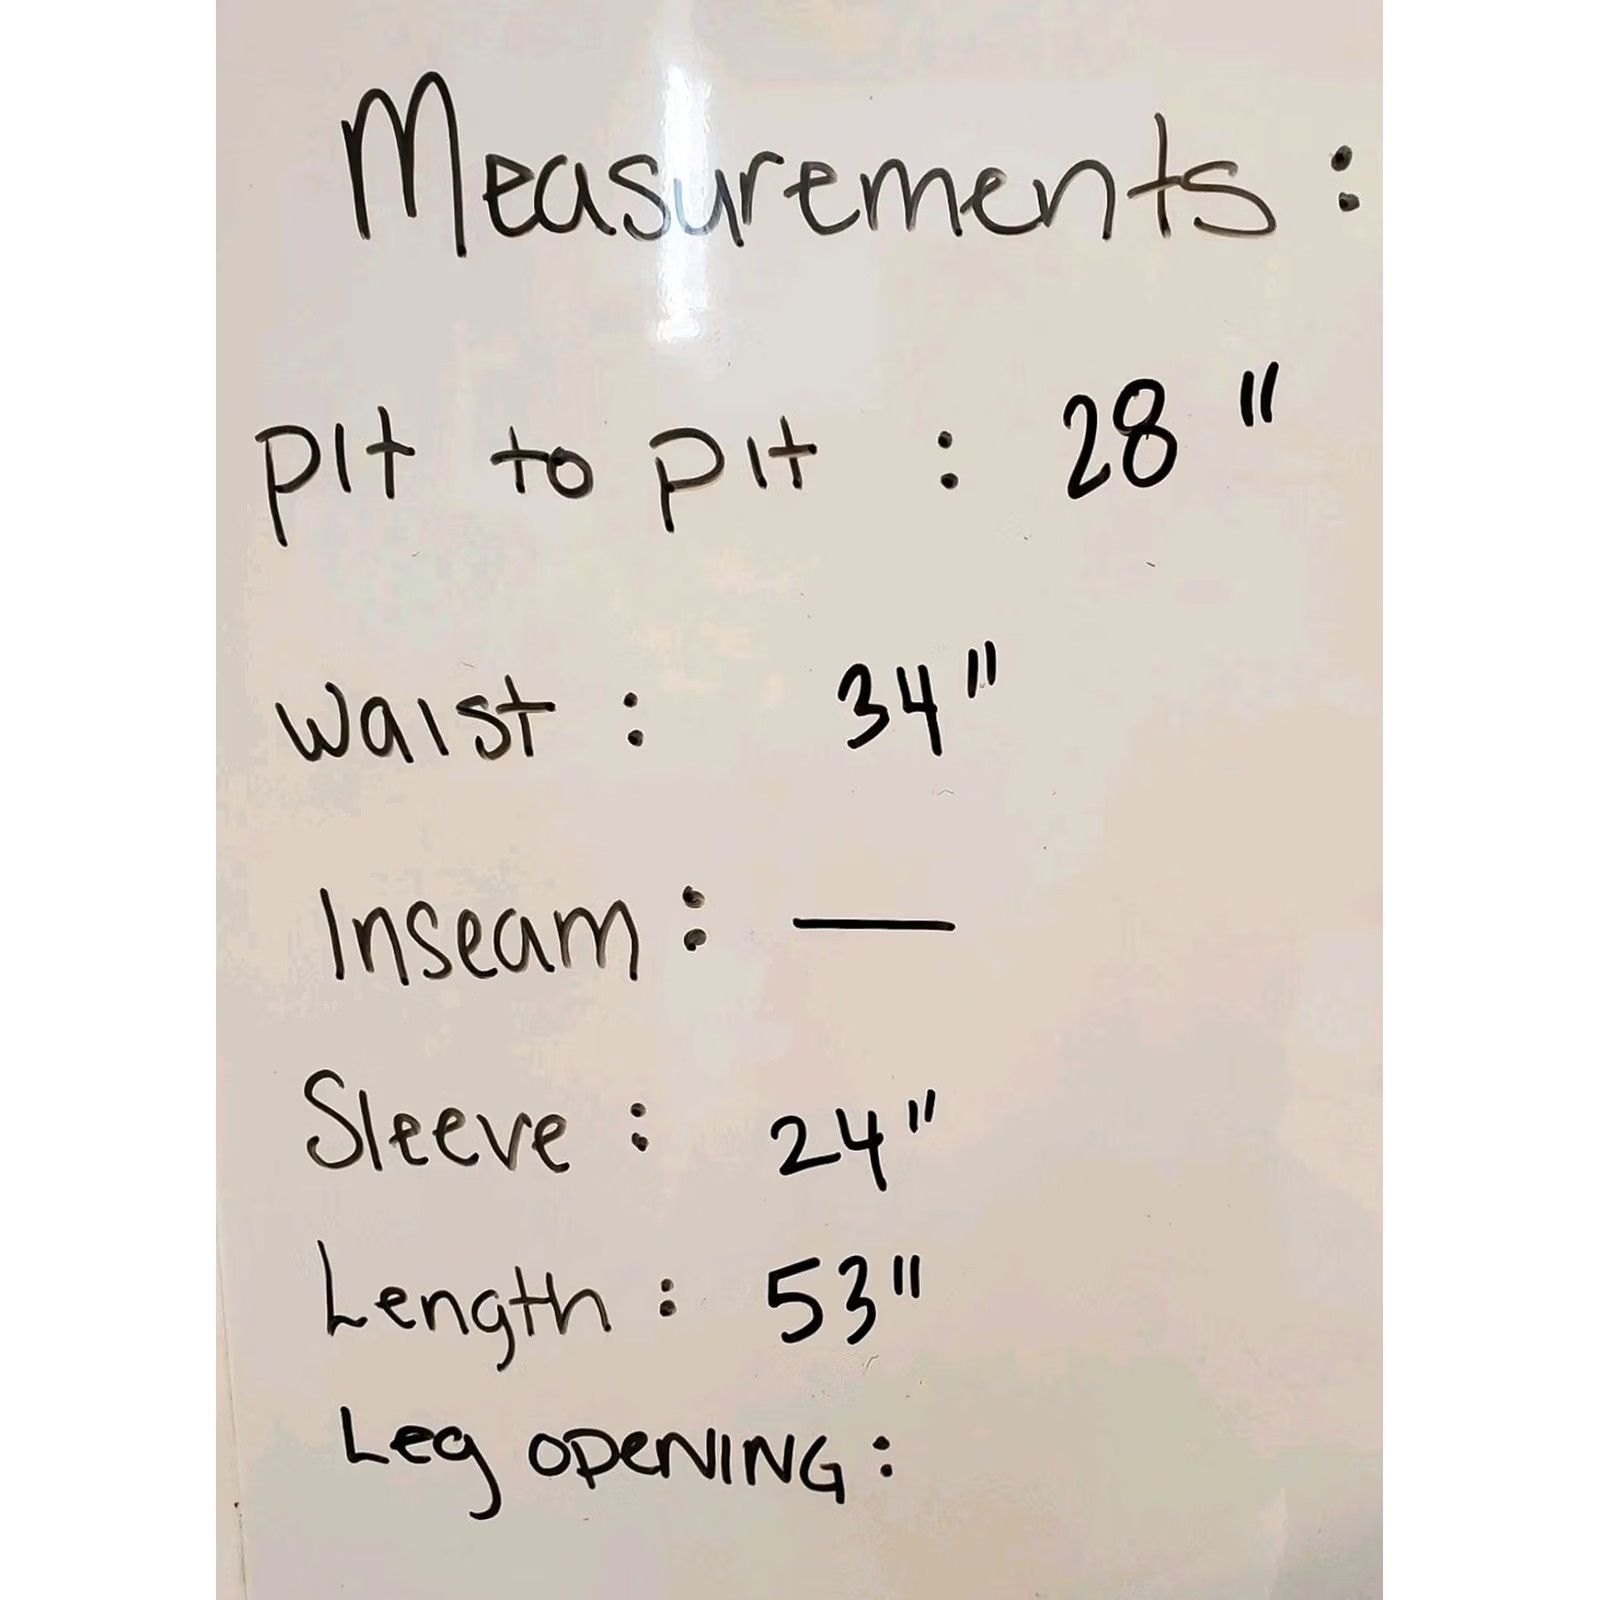 Measurements :
pit to pit : 28 "
waist : 34 "
Inseam : —
Sleeve : 24 "
Length : 53 "
Leg OPENING :